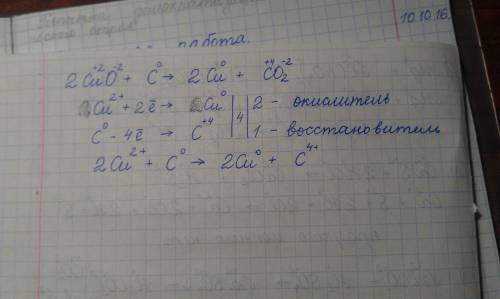 10.10.16.
работа.
2Cu⁺²O⁻² + C⁰ → 2Cu⁰ + C⁺⁴O₂⁻²
Cu²⁺ + 2ē → Cu⁰ | 4 | 2 - окислитель
C⁰ - 4ē → C⁺⁴ | | 1 - восстановитель
2Cu²⁺ + C⁰ → 2Cu⁰ + C⁴⁺